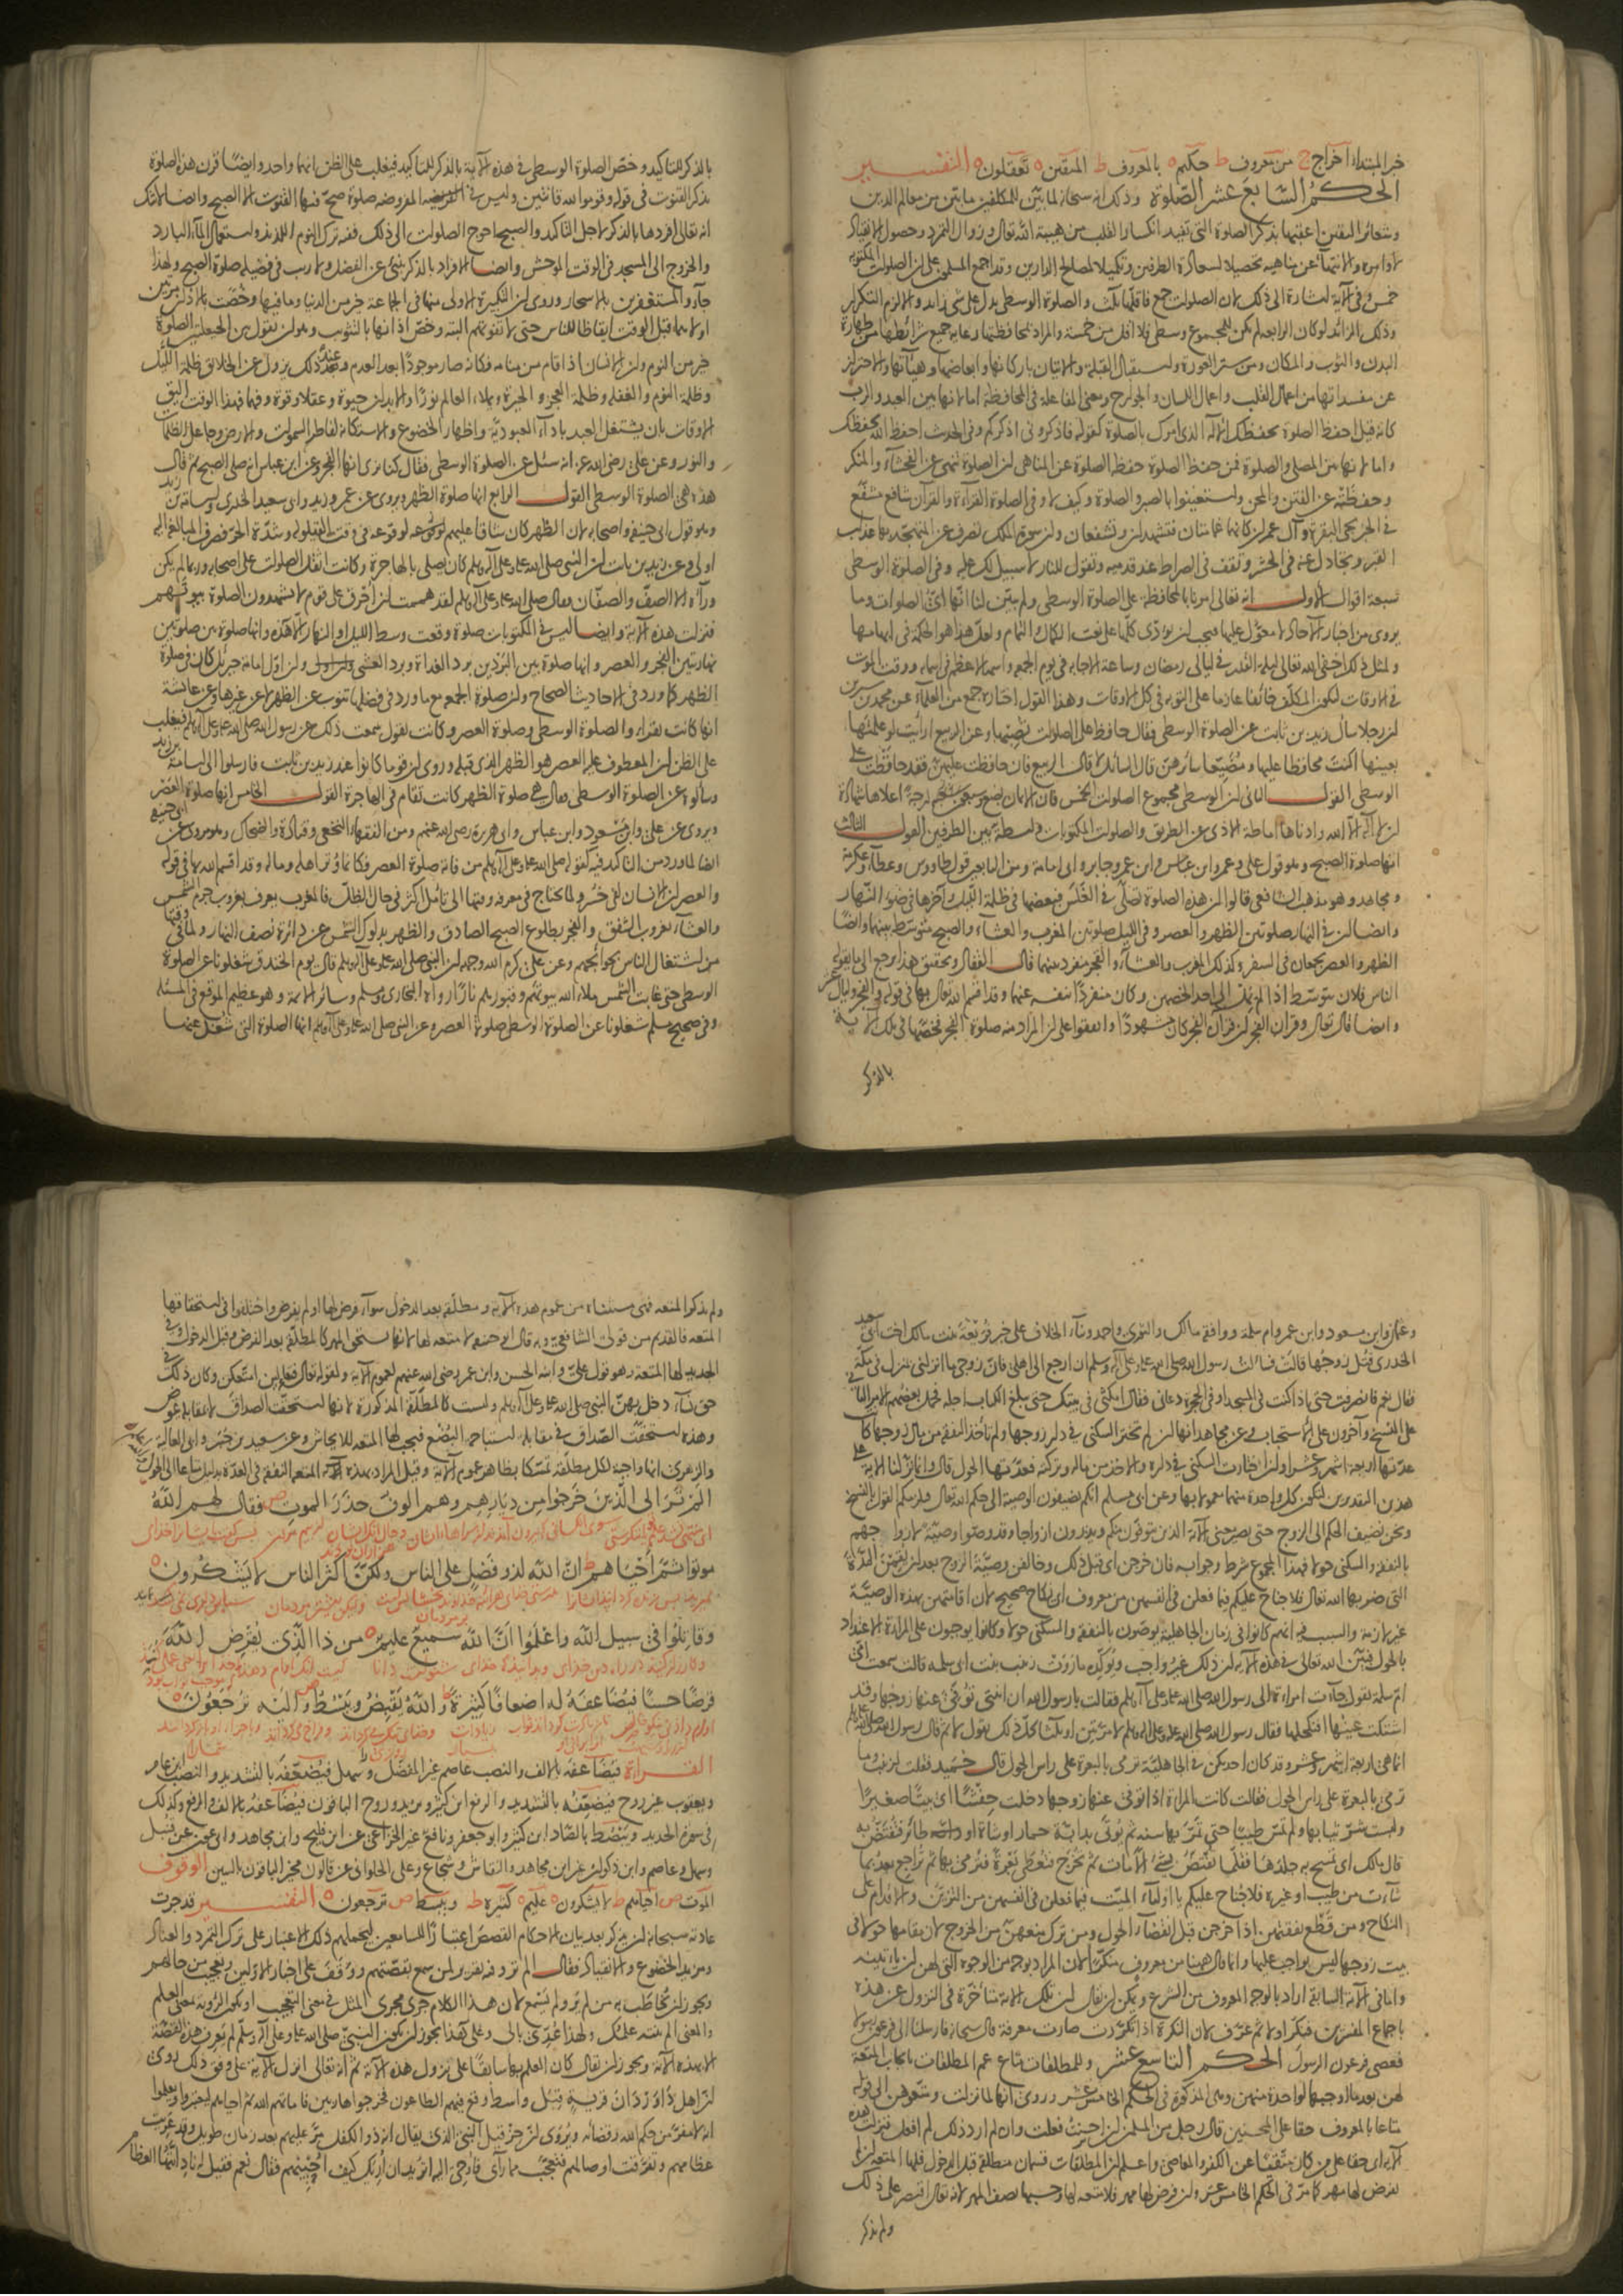 خبر المبتدا آخراج ج من معروف ط حكيم ه بالمعروف ط المتقين ه تعقلون ه التفسير
الحكم السابع عشر الصلوة وذلك انه سبحانه لما بين للمكلفين ما بين من معالم الدين
وشعائر اليقين اعقبها بذكر الصلوة التى تفيد انكسار القلب من هيبة الله تعالى وزوال التمرد وحصول الانقياد
لاوامره والانتهاء عن مناهيه تحصيلا لسعادة الطرفين وتكميلا لمصالح الدارين وقد اجمع المسلمون على ان الصلوات المكتوبة
خمس وفى الآية اشارة الى ذلك لان الصلوات جمع فاقلها ثلث والصلوة الوسطى يدل على شى زايد والا لزم التكرار
وذلك الزائد لو كان الرابعة لم يكن للمجموع وسطى فلا اقل من خمسة والمراد بمحافظتها رعاية جميع شرائطها من طهارة
البدن والثوب والمكان ومن ستر العورة واستقبال القبلة والاتيان باركانها وابعاضها وهيآتها والاحتراز
عن مفسداتها من اعمال القلب واعمال اللسان والجوارح ومعنى المفاعلة فى المحافظة اما لانها بين العبد والرب
كانه قيل احفظ الصلوة يحفظك الاله الذى امرك بالصلوة كقوله فاذكرونى اذكركم وفى الحديث احفظ الله يحفظك
واما لانها بين المصلى والصلوة فمن حفظ الصلوة حفظته الصلوة عن المناهى ان الصلوة تنهى عن الفحشاء والمنكر
وحفظته عن الفتن والمحن واستعينوا بالصبر والصلوة وكيف لا وفى الصلوة القراءة والقرآن شافع مشفع
فى الخبر تجى البقرة وآل عمران كانهما غمامتان فتشهدان وتشفعان وان سورة الملك تصرف عن المتهجد بها عذاب
القبر وتجادل عنه فى الحشر وتقف فى الصراط عند قدميه وتقول للنار لا سبيل لك عليه وفى الصلوة الوسطى
سبعة اقوال الاول انه تعالى امرنا بالمحافظة على الصلوة الوسطى ولم يبين لنا انها اى الصلوات وما
يروى من اخبار الآحاد لا معول عليها فيجب ان نؤدى كلها على نعت الكمال والتمام ولعل هذا هو الحكمة فى ابهامها
ولمثل ذلك اخفى الله تعالى ليلة القدر فى ليالى رمضان وساعة الاجابة فى يوم الجمعة واسمه الاعظم فى اسمائه ووقت الموت
فى الاوقات ليكون المكلف خائفا عازما على التوبة فى كل الاوقات وهذا القول اختاره جمع من العلماء عن محمد بن سيرين
ان رجلا سأل زيد بن ثابت عن الصلوة الوسطى فقال حافظ على الصلوات تصبها وعن الربيع ارأيت لو علمتها
بعينها اكنت محافظا عليها ومضيعا سائرهن قال السائل لا قال الربيع فان حافظت عليهن فقد حافظت على
الوسطى القول الثانى ان الوسطى مجموع الصلوات الخمس فان الايمان بضع وسبعون درجة اعلاها شهادة
ان لا اله الا الله وادناها اماطة الاذى عن الطريق والصلوات المكتوبات واسطة بين الطرفين القول الثالث
انها صلوة الصبح وهو قول على وعمر وابن عباس وابن عمر وجابر وابى امامة ومن التابعين قول طاوس وعطاء وعكرمة
ومجاهد وهو مذهب الشافعى قالوا ان هذه الصلوة تصلى فى الغلس فبعضها فى ظلمة الليل وآخرها فى ضوء النهار
وايضا ان فى النهار صلوتين الظهر والعصر وفى الليل صلوتين المغرب والعشاء والصبح متوسط بينهما وايضا
الظهر والعصر يجمعان فى السفر وكذلك المغرب والعشاء والفجر منفرد بينهما قال القفال وتحقيق هذا يرجع الى ما يقوله
الناس فلان متوسط اذا لم يمل الى احد الخصمين وكان منفردا بنفسه عنهما وقد اقسم الله تعالى بها فى قوله والفجر وليال عشر
وايضا قال تعالى وقرآن الفجر ان قرآن الفجر كان مشهودا واتفقوا على ان المراد منه صلوة الفجر فخصها فى تلك الآية
بالذكر
بالذكر للتاكيد وخص الصلوة الوسطى فى هذه الآية بالذكر للتاكيد فيغلب على الظن انهما واحد وايضا قرن هذه الصلوة
بذكر القنوت فى قوله وقوموا لله قانتين وليس فى المفروضة صلوة صح فيها القنوت الا الصبح وايضا لا شك
انه تعالى افردها بالذكر لاجل التاكيد والصبح احوج الصلوات الى ذلك ففيه ترك النوم اللذيذ واستعمال الماء البارد
والخروج الى المسجد فى الوقت الموحش وايضا الافراد بالذكر ينبئ عن الفضل ولا ريب فى فضيلة صلوة الصبح ولهذا
جاء والمستغفرين بالاسحار وروى ان التكبيرة الاولى منها فى الجماعة خير من الدنيا وما فيها وخصت بالاذان مرتين
اولاهما قبل الوقت ايقاظا للناس حتى لا تفوتهم البتة وخص اذانها بالتثويب وهو ان يقول بين الحيعلتين الصلوة
خير من النوم وان الانسان اذا قام من منامه فكانه صار موجودا بعد العدم وعند ذلك يزول عن الخلائق ظلمة الليل
وظلمة النوم والغفلة وظلمة العجز والحيرة ويملاء العالم نورا والابدان حيوة وعقلا وقوة وفهما فهذا الوقت اليق
الاوقات بان يشتغل العبد باداء العبودية واظهار الخضوع والاستكانة لفاطر السموات والارض وجاعل الظلمات
والنور وعن على رضى الله عنه انه سئل عن الصلوة الوسطى فقال كنا نرى انها الفجر وعن ابن عباس انه صلى الصبح ثم قال
هذه هى الصلوة الوسطى القول الرابع انها صلوة الظهر ويروى عن عمر وزيد وابى سعيد الخدرى واسامة بن زيد
وهو قول ابى حنيفة واصحابه لان الظهر كان شاقا عليهم لوقوعه فى وقت القيلولة وشدة الحر فصرف المبالغة اليه
اولى وعن زيد بن ثابت ان النبى صلى الله عليه وعلى آله وسلم كان يصلى بالهاجرة وكانت اثقل الصلوات على اصحابه وربما لم يكن
وراءه الا الصف والصفان وقال صلى الله عليه وعلى آله وسلم لقد هممت ان احرق على قوم لا يشهدون الصلوة بيوتهم
فنزلت هذه الآية وايضا ليس فى المكتوبات صلوة وقعت وسط الليل او النهار الا هذه وانها صلوة بين صلوتين
نهاريتين الفجر والعصر وانها صلوة بين البردين برد الغداة وبرد العشى وان اول امامة جبريل كان فى صلوة
الظهر كما ورد فى الاحاديث الصحاح وان صلوة الجمعة مع ما ورد فى فضلها تنوب عن الظهر لا عن غيرها وعن عائشة
انها كانت تقراء والصلوة الوسطى وصلوة العصر وكانت تقول سمعت ذلك عن رسول الله صلى الله عليه وعلى آله وسلم فيغلب
على الظن ان المعطوف عليه العصر هو الظهر الذى قبله وروى ان قوما كانوا عند زيد بن ثابت فارسلوا الى اسامة بن زيد
وسألوه عن الصلوة الوسطى فقال هى صلوة الظهر كانت تقام فى الهاجرة القول الخامس انها صلوة العصر
ويروى عن على وابن مسعود وابن عباس وابى هريرة رضى الله عنهم ومن الفقهاء النخعى وقتادة والضحاك وهو مروى عن ابى حنيفة
ايضا لما ورد من التاكيد فيه كقوله صلى الله عليه وعلى آله وسلم من فاته صلوة العصر فكانما وتر اهله وماله وقد اقسم الله بها فى قوله
والعصر ان الانسان لفى خسر ولما يحتاج فى معرفة وقتها الى تأمل اكثر فى حال الظل فالمغرب يعرف بغروب جرم الشمس
والعشاء بغروب الشفق والفجر بطلوع الصبح الصادق والظهر بدلوك الشمس عن دائرة نصف النهار ولما فى وقتها
من اشتغال الناس بحوائجهم وعن على كرم الله وجهه ان النبى صلى الله عليه وعلى آله وسلم قال يوم الخندق شغلونا عن الصلوة
الوسطى حتى غابت الشمس ملاء الله بيوتهم وقبورهم نارا رواه البخارى ومسلم وسائر الائمة وهو عظيم الموقع فى المسئلة
وفى صحيح مسلم شغلونا عن الصلوة الوسطى صلوة العصر وعن النبى صلى الله عليه وعلى آله وسلم انها الصلوة التى شغل عنها
وعثمان وابن مسعود وابن عمر وام سلمة ووافقه مالك والثورى واحمد وبناء الخلاف على خبر فريعة بنت مالك اخت ابى سعيد
الخدرى قتل زوجها قالت فسألت رسول الله صلى الله عليه وعلى آله وسلم ان ارجع الى اهلى فان زوجى ما انزلنى بمنزل يملكه
فقال نعم فانصرفت حتى اذا كنت فى المسجد او فى الحجرة دعانى فقال امكثى فى بيتك حتى يبلغ الكتاب اجله فحمل بعضهم الامر الثانى
على النسخ وآخرون على الاستحباب وعن مجاهد انها ان لم تختر السكنى فى دار زوجها ولم تأخذ النفقة من مال زوجها كانت
عدتها اربعة اشهر وعشرا وان اختارت السكنى فى داره والاخذ من ماله وتركته فعدتها الحول قال وانما نزلنا الآية على
هذين التقديرين ليكون كل واحدة منهما معمولا بها وعن ابى مسلم انكم تضيفون الوصية الى حكم الله تعالى فلزمكم القول بالنسخ
ونحن نضيف الحكم الى الزوج حتى يصير معنى الآية الذين يتوفون منكم ويذرون ازواجا وقد وصوا وصية لازواجهم
بالنفقة والسكنى حولا فهذا المجموع شرط وجوابه فان خرجن اى قبل ذلك وخالفن وصية الزوج بعد ان يقمن المدة
التى ضربها الله تعالى فلا جناح عليكم فيما فعلن فى انفسهن من معروف اى نكاح صحيح لان اقامتهن بهذه الوصية
غير لازمة والسبب فيه انهم كانوا فى زمان الجاهلية يوصون بالنفقة والسكنى حولا وكانوا يوجبون على المراءة الاعتداد
بالحول فبين الله تعالى فى هذه الآية ان ذلك غير واجب ويؤكده ما روت زينب بنت ابى سلمة قالت سمعت امى
ام سلمة تقول جاءت امراءة الى رسول الله صلى الله عليه وعلى آله وسلم فقالت يا رسول الله ان ابنتى توفى عنها زوجها وقد
اشتكت عينها افنكحلها فقال رسول الله صلى الله عليه وعلى آله وسلم لا مرتين او ثلثا كل ذلك يقول لا ثم قال رسول الله صلى الله عليه وسلم
انما هى اربعة اشهر وعشر وقد كان احديكن فى الجاهلية ترمى بالبعرة على راس الحول قال حميد فقلت لزينب وما
ترمى بالبعرة على راس الحول فقالت كانت المراءة اذا توفى عنها زوجها دخلت حفشا اى بيتا صغيرا
ولبست شر ثيابها ولم تمس طيبا حتى تمر بها سنة ثم يؤتى بدابة حمار او شاة او طائر فتفتض به
قال مالك اى تمسح به جلدها فقلما تفتض بشئ الا مات ثم تخرج فتعطى بعرة فترمى بها ثم تراجع بعد ما
شاءت من طيب او غيره فلا جناح عليكم يا اولياء الميت فيما فعلن فى انفسهن من التزين والاقدام على
النكاح ومن قطع نفقتهن اذا خرجن قبل انقضاء الحول ومن ترك منعهن من الخروج لان مقامها حولا فى
بيت زوجها ليس بواجب عليها وانما قال ههنا من معروف منكرا لان المراد بوجه من الوجوه التى لهن ان ياتينه
واما فى الآية السابقة اراد بالوجه المعروف من الشرع ويمكن ان يقال ان تلك الآية متأخرة فى النزول عن هذه
باجماع المفسرين فنكر اولا ثم عرف لان النكرة اذا تكررت صارت معرفة قال سبحانه فارسلنا الى فرعون رسولا
فعصى فرعون الرسول الحكم التاسع عشر وللمطلقات متاع عم المطلقات بايجاب المتعة
لهن بعد ما اوجبها لواحدة منهن وهى المذكورة فى الحكم الخامس عشر وروى انها لما نزلت ومتعوهن الى قوله
متاعا بالمعروف حقا على المحسنين قال رجل من المسلمين ان احببت فعلت وان لم ارد ذلك لم افعل فنزلت هذه
الآية اى حقا على من كان متقيا عن الكفر والمعاصى واعلم ان المطلقات قسمان مطلقة قبل الدخول فلها المتعة ان لم
يفرض لها مهر كما مر فى الحكم الخامس عشر وان فرض لها مهر فلا متعة لها وحسبها نصف المهر لانه تعالى اقتصر على ذلك
ولم يذكر
ولم يذكر المتعة فهى مستثناة من عموم هذه الآية ومطلقة بعد الدخول سواء فرض لها او لم يفرض واختلفوا فى استحقاقها
المتعة فالقديم من قولى الشافعى وبه قال ابو حنيفة لا متعة لها لانها تستحق المهر كالمطلقة بعد الفرض وقبل الدخول وفى
الجديد لها المتعة وهو قول على وابنه الحسن وابن عمر رضى الله عنهم لعموم الآية ولقوله تعالى فتعالين امتعكن وكان ذلك فى
حق نساء دخل بهن النبى صلى الله عليه وعلى آله وسلم وليست كالمطلقة المذكورة لانها تستحق الصداق لا بمقابلة عوض
وهذه تستحق الصداق فى مقابلة استباحة البضع فيجب لها المتعة للايحاش وعن سعيد بن جبير وابى العالية
والزهرى انها واجبة لكل مطلقة تمسكا بظاهر عموم الآية وقيل المراد بهذه المتعة النفقة فى العدة بدليل متاعا الى الحول
الم تر الى الذين خرجوا من ديارهم وهم الوف حذر الموت ص فقال لهم الله
موتوا ثم احياهم ط ان الله لذو فضل على الناس ولكن اكثر الناس لا يشكرون ه
وقاتلوا فى سبيل الله واعلموا ان الله سميع عليم ه من ذا الذى يقرض الله
قرضا حسنا فيضاعفه له اضعافا كثيرة ط والله يقبض ويبسط ص واليه ترجعون ه
القراءة فيضاعفه بالالف والنصب عاصم غير المفضل وسهل فيضعفه بالتشديد والنصب ابن عامر
ويعقوب غير روح فيضعفه بالتشديد والرفع ابن كثير ويزيد وروح الباقون فيضاعفه بالالف والرفع وكذلك
فى سورة الحديد ويبصط بالصاد ابن كثير وابو جعفر ونافع غير الخزاعى عن ابن فليح وابن مجاهد وابى عون عن قنبل
وسهل وعاصم وابن ذكوان غير ابن مجاهد والنقاش وشجاع وعلى الحلوانى عن قالون مخير الباقون بالسين الوقوف
الموت ص احياهم ط لا يشكرون ه عليم ه كثيرة ط ويبسط ص ترجعون ه التفسير قد جرت
عادته سبحانه ان يذكر بعد بيان الاحكام القصص اعتبارا للسامعين ليحملهم ذلك الاعتبار على ترك التمرد والعناد
ومزيد الخضوع والانقياد فقال الم تر وفيه تقرير لمن سمع بقصتهم ووقف على اخبار الاولين وتعجيب من حالهم
ويجوز ان يخاطب به من لم ير ولم يسمع لان هذا الكلام جرى مجرى المثل فى معنى التعجيب او يكون الرؤية بمعنى العلم
والمعنى الم ينته علمك ولهذا عدى بالى وعلى هذا يجوز ان يكون النبى صلى الله عليه وعلى آله وسلم لم يعرف هذه القصة
الا بهذه الآية ويجوز ان يقال كان العلم بها سابقا على نزول هذه الآية ثم انه تعالى انزل الآية على وفق ذلك روى
ان اهل داوردان قرية قبل واسط وقع فيهم الطاعون فخرجوا هاربين فاماتهم الله ثم احياهم ليعتبروا ويعلموا
انه لا مفر من حكم الله وقضائه ويروى ان حزقيل النبى الذى يقال انه ذو الكفل مر عليهم بعد زمان طويل وقد عريت
عظامهم وتفرقت اوصالهم فتعجب مما رآى فاوحى اليه اتريد ان اريك كيف احييهم فقال نعم فقيل له ناد ايتها العظام